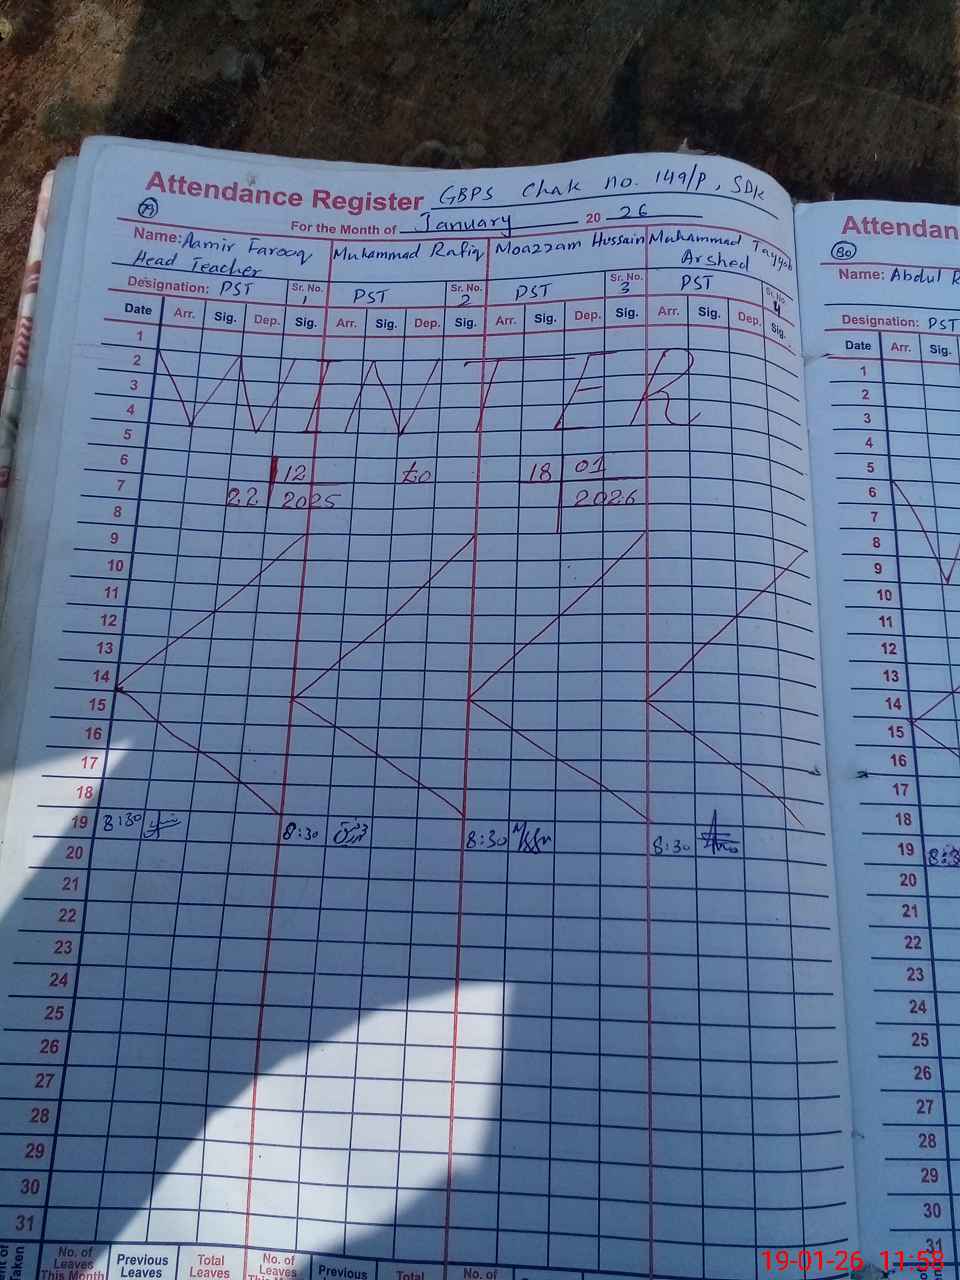 Attendance Register GBPS Chak no. 149/P, SDK
79
For the Month of January 20 26
Name: Aamir Farooq Muhammad Rafiq Moazzam Hussain Muhammad Tayyab
Head Teacher Arshed
Designation: PST Sr. No. 1 PST Sr. No. 2 PST Sr. No. 3 PST Sr. No. 4
Date Arr. Sig. Dep. Sig. Arr. Sig. Dep. Sig. Arr. Sig. Dep. Sig. Arr. Sig. Dep. Sig.
1
2
3
4
WINTER
5
6 12 to 18 01
7 22 2025 2026
8
9
10
11
12
13
14
15
16
17
18
19 8:30 8:30 8:30 8:30
20
21
22
23
24
25
26
27
28
29
30
31
No. of Leaves This Month Previous Leaves Total Leaves No. of Leaves This Month Previous Leaves Total No. of
Taken
Attendan
80
Name: Abdul R
Designation: PST
Date Arr. Sig.
1
2
3
4
5
6
7
8
9
10
11
12
13
14
15
16
17
18
19
20
21
22
23
24
25
26
27
28
29
30
31
19-01-26 11:58